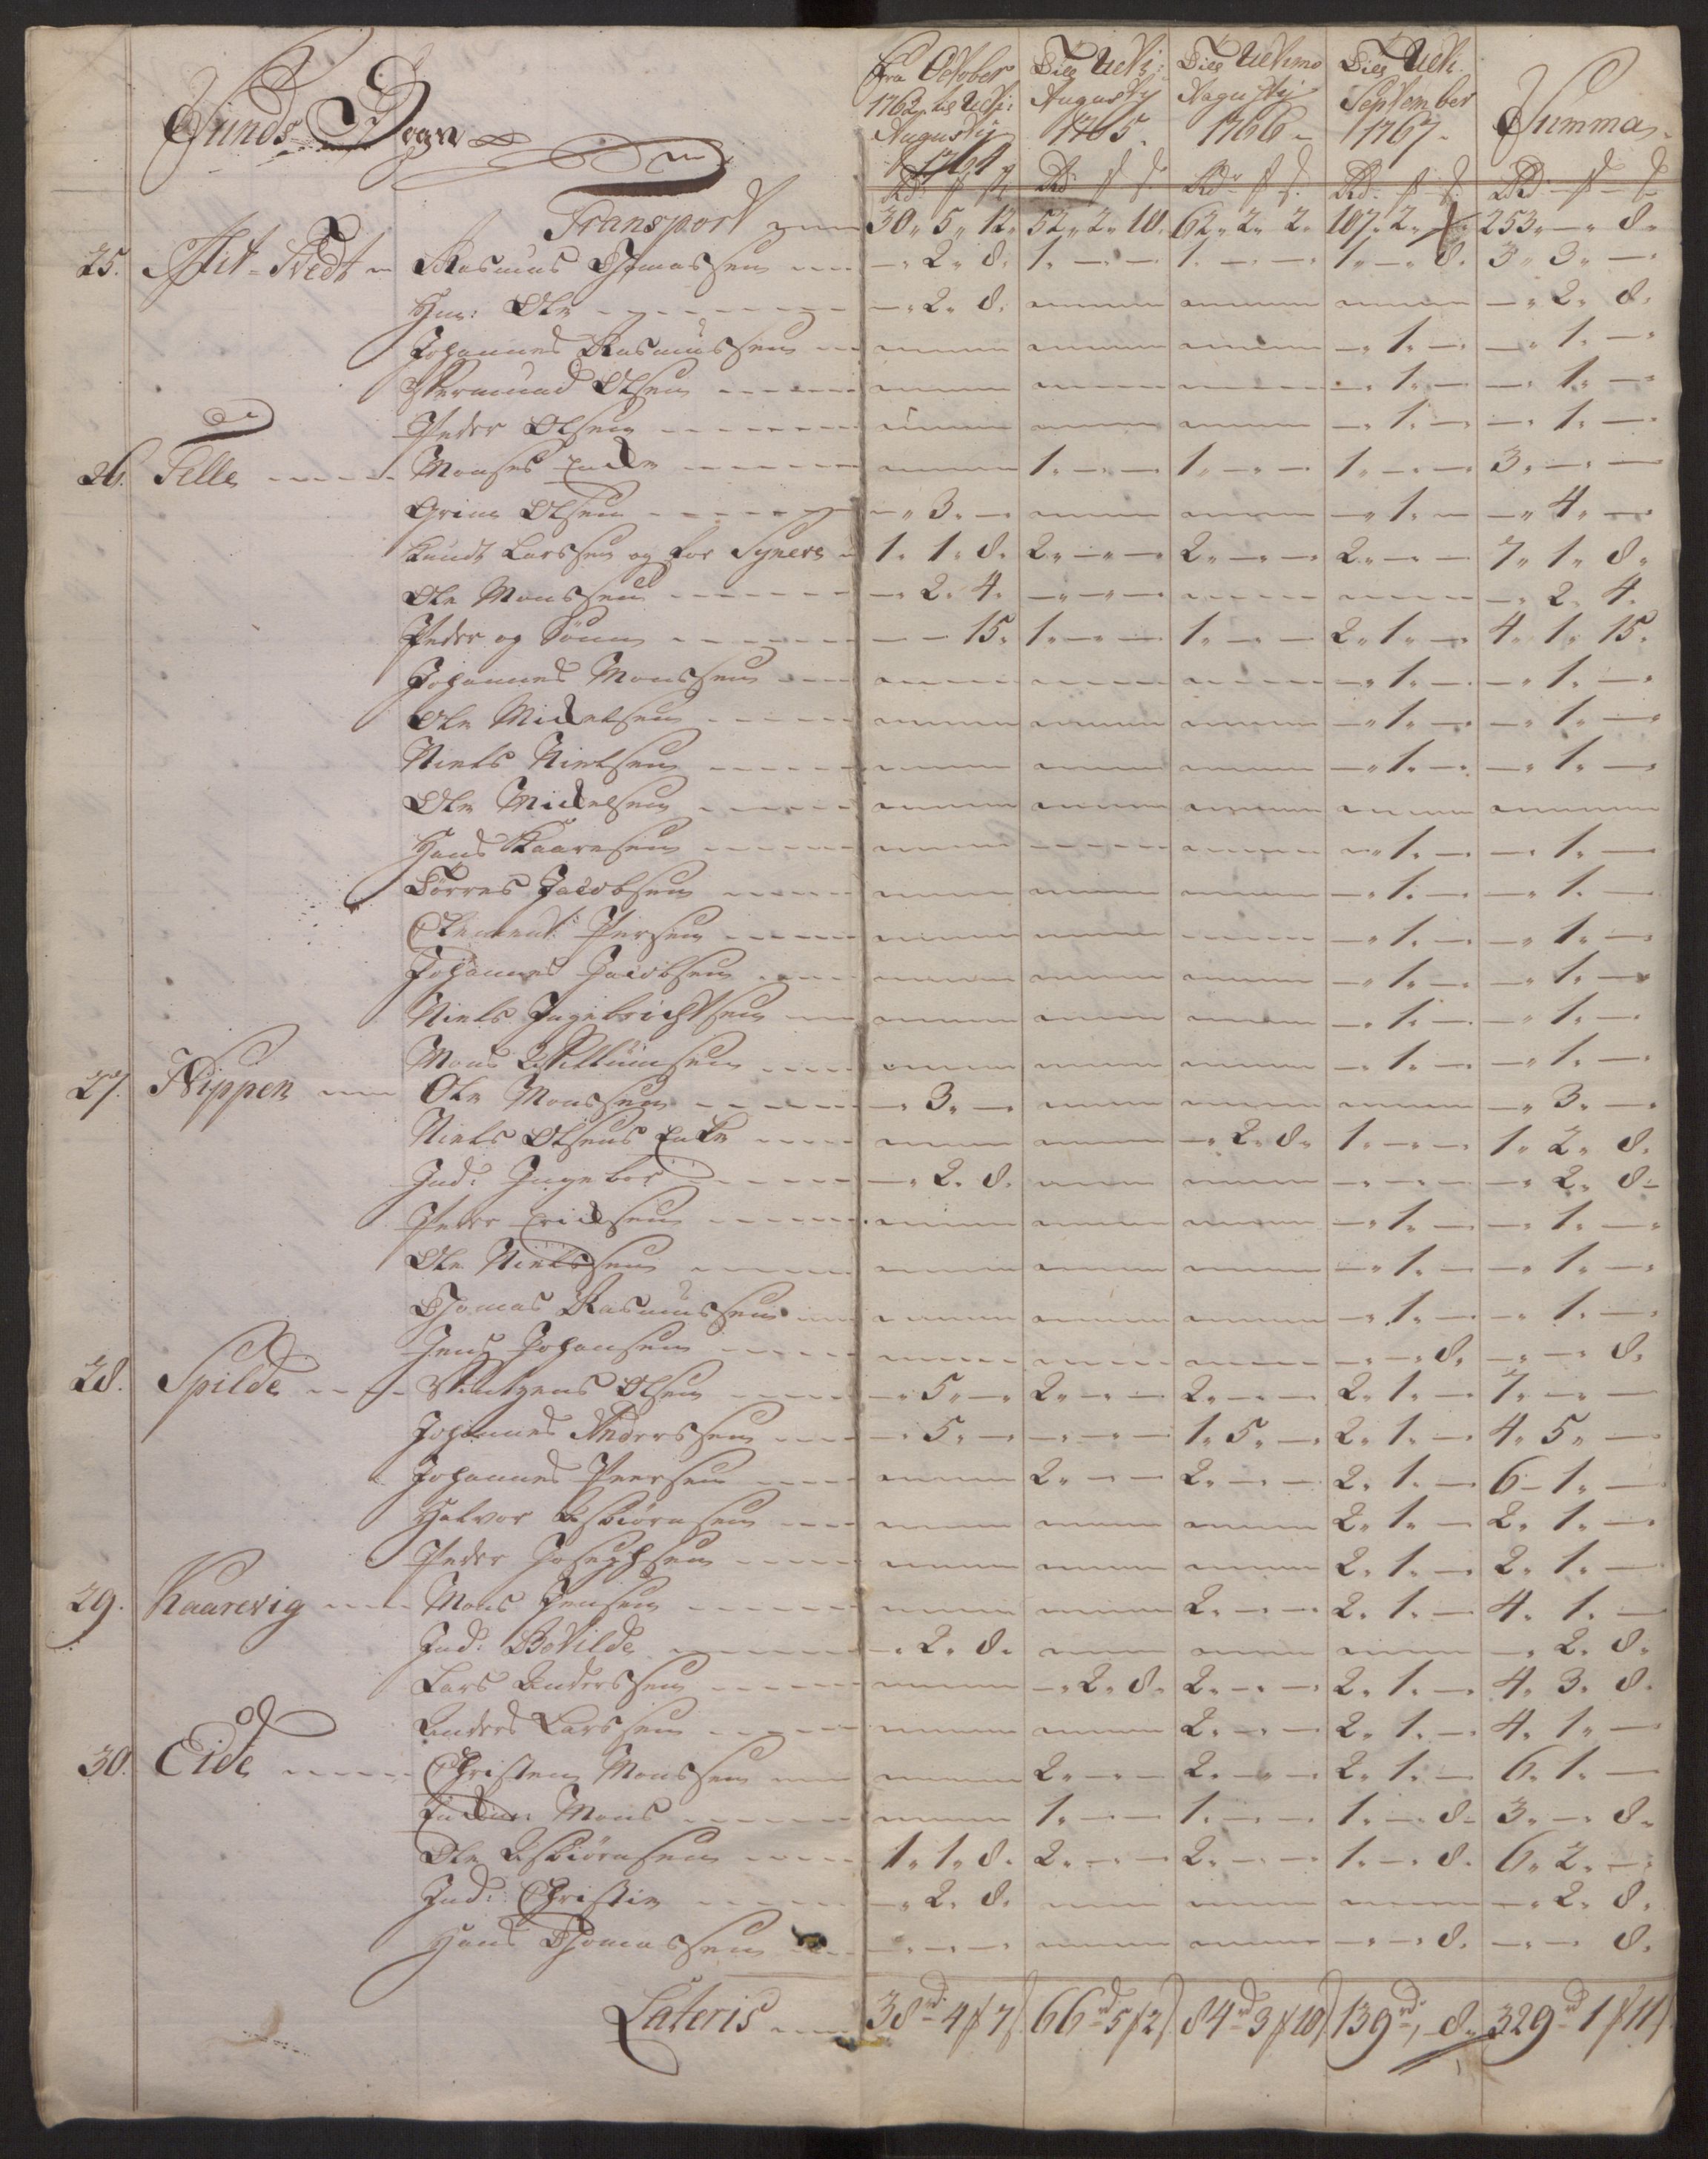 Sunds Sogn
Fra October 1762 til Ulti: Augustij 1764
Till Ulti: Augustij 1765
Till Ultimo Augustij 1766
Till Ulti. September 1767
Summa
Rd ß Rd ß Rd ß Rd ß Rd ß
Transport 30. 5. 12. 52. 2. 10. 62. 2. 2. 107. 2. 253. — 8.
25. Mit-Tvedt Rasmus Thomassen — 2. 8. 1. — — 1. — — 1. — 8. 3. 3. —
Hm: Ole — 2. 8. — 2. 8.
Johannes Rasmussen — 1. — — 1. —
Wermund Olsen — 1. — — 1. —
Peder Olsen — 1. — — 1. —
26. Telle Monses Encke 1. — — 1. — — 1. — — 3. — —
Grim Olsen — 3. — — 1. — — 4. —
Knudt Larssen og for Synere 1. 1. 8. 2. — — 2. — — 2. — — 7. 1. 8.
Ole Monssen — 2. 4. — — — — 2. 4.
Peder og Sönn — — 15. 1. — — 1. — — 2. 1. — 4. 1. 15.
Johannes Monssen — 1. — — 1. —
Ole Mickelsen — 1. — — 1. —
Niels Nielsen — 1. — — 1. —
Ole Mickelsen
Hans Kaaresen — 1. — — 1. —
Torres Jacobsen — 1. — — 1. —
Clement Persen — 1. — — 1. —
Johannes Jacobsen — 1. — — 1. —
Niels Ingebrichtsen — 1. — — 1. —
Mons Willumsen — 1. — — 1. —
27. Nippen Ole Monssen — 3. — — 3. —
Niels Olsens Encke — 2. 8. 1. — — 1. 2. 8.
Ind: Ingebor — 2. 8. — — — — 2. 8.
Peder Ericksen — 1. — — 1. —
Ole Nielssen — 1. — — 1. —
Thomas Rasmussen — 1. — — 1. —
Jens Johansen — — 8. — — 8.
28. Spilde Wintzens Olsen — 5. — 2. — — 2. — — 2. 1. — 7. — —
Johannes Anderssen — 5. — — — — 1. 5. — 2. 1. — 4. 5. —
Johannes Peersen 2. — — 2. — — 2. 1. — 6. 1. —
Halvor Asbiörnsen 2. 1. — 2. 1. —
Peder Josephsen 2. 1. — 2. 1. —
29. Kaarevig Mons Jensen 2. — — 2. 1. — 4. 1. —
Ind: Botilde — 2. 8. — 2. 8.
Lars Anderssen — 2. 8. 2. — — 2. 1. — 4. 3. 8.
Anders Larssen 2. — — 2. 1. — 4. 1. —
30. Eide Christen Monssen 2. — — 2. — — 2. 1. — 6. 1. —
Mons 1. — — 1. — — 1. — 8. 3. — 8.
Ole Asbiörnsen 1. 1. 8. 2. — — 2. — — 1. — 8. 6. 2. —
Ind: Christie — 2. 8. — 2. 8.
Hans Thomassen — — — — — 8. — — 8.
Lateris 38rd 4ß 7 66rd 5ß 2 84rd 3ß 10 139rd, 8. 329rd 1ß 11